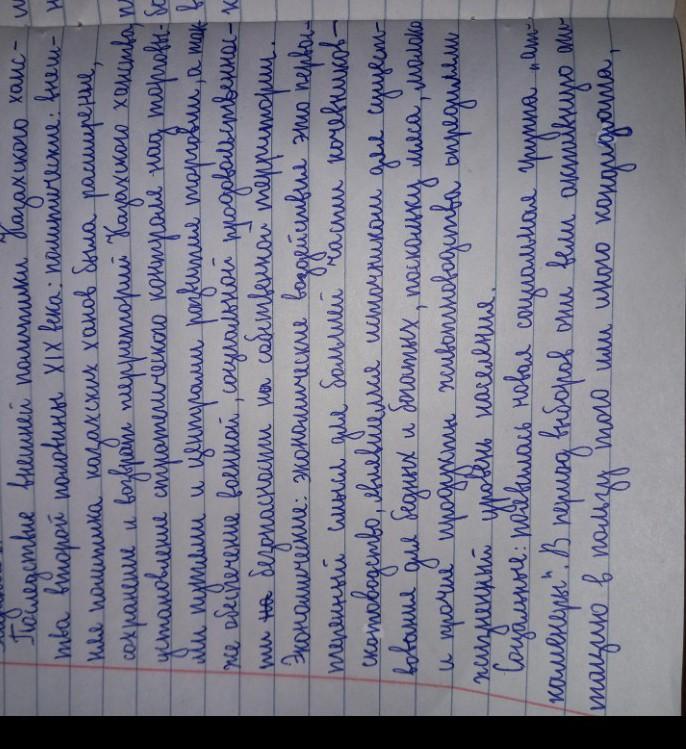 Последствие внешней политики Казахского ханс-
тва второй половины XIX века: политические: внеш-
ние политика казахских ханов была расширение,
сохранение и возврат территорий Казахского ханства
установление стратегического контроля над торговы-
ми путями и центрами развития торговли, а так
же обеспечение военной, социальной продовольственнос-
ти на безопасности на собственной территории.
Экономические: экономические воздействия это первос-
тепенный смысл для большей части кочевников-
скотоводство, являвшимся источником для сущест-
вования для бедных и богатых, поскольку мяса, молоко
и прочие продукты животноводства определяли
жизненный уровень населения.
Социальные: появилась новая социальная группа „ат-
каменеры". В период выборов они вели активную аги-
тацию в пользу того или иного кандидата,